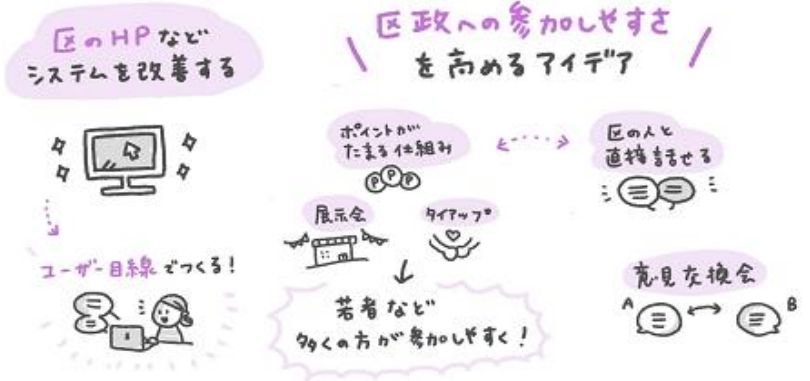 区のHPなど
システムを改善する
ユーザー目線でつくる!
区政への参加しやすさ
を高めるアイデア
ポイントが
たまる仕組み
P P P
展示会
タイアップ
若者など
多くの方が参加しやすく!
区の人と
直接話せる
意見交換会
A
B